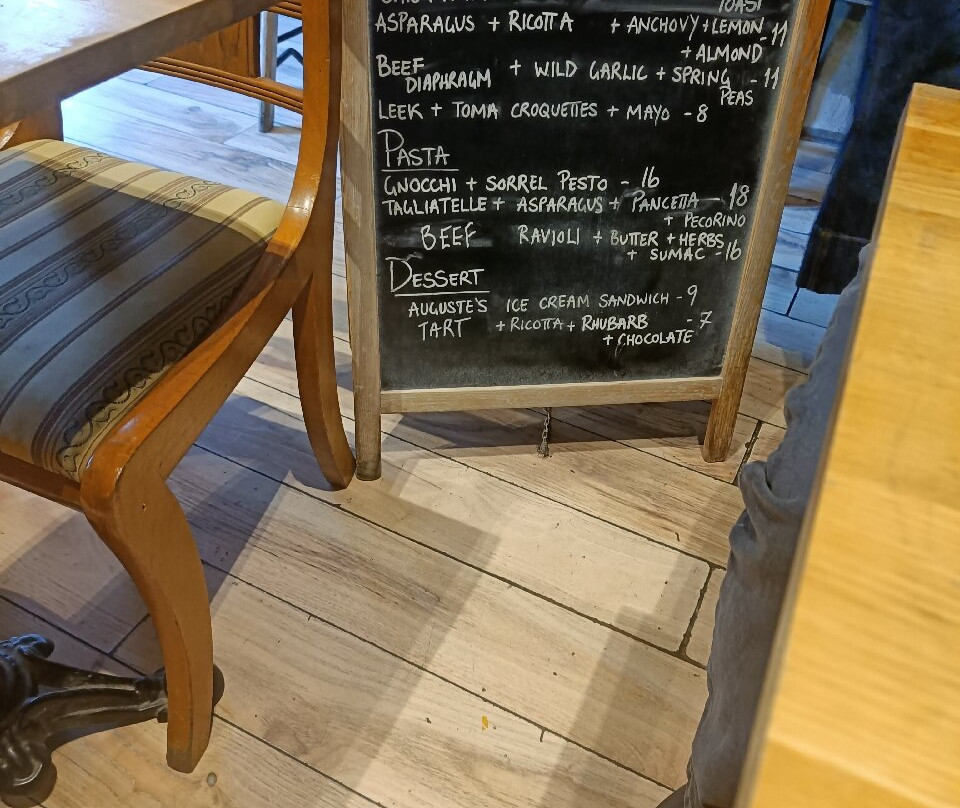 TOAST
ASPARAGUS + RICOTTA + ANCHOVY + LEMON - 11
+ ALMOND
BEEF DIAPHRAGM + WILD GARLIC + SPRING PEAS - 11
LEEK + TOMA CROQUETTES + MAYO - 8
PASTA
GNOCCHI + SORREL PESTO - 16
TAGLIATELLE + ASPARAGUS + PANCETTA - 18
+ PECORINO
BEEF RAVIOLI + BUTTER + HERBS
+ SUMAC - 16
DESSERT
AUGUSTE'S ICE CREAM SANDWICH - 9
TART + RICOTTA + RHUBARB - 7
+ CHOCOLATE